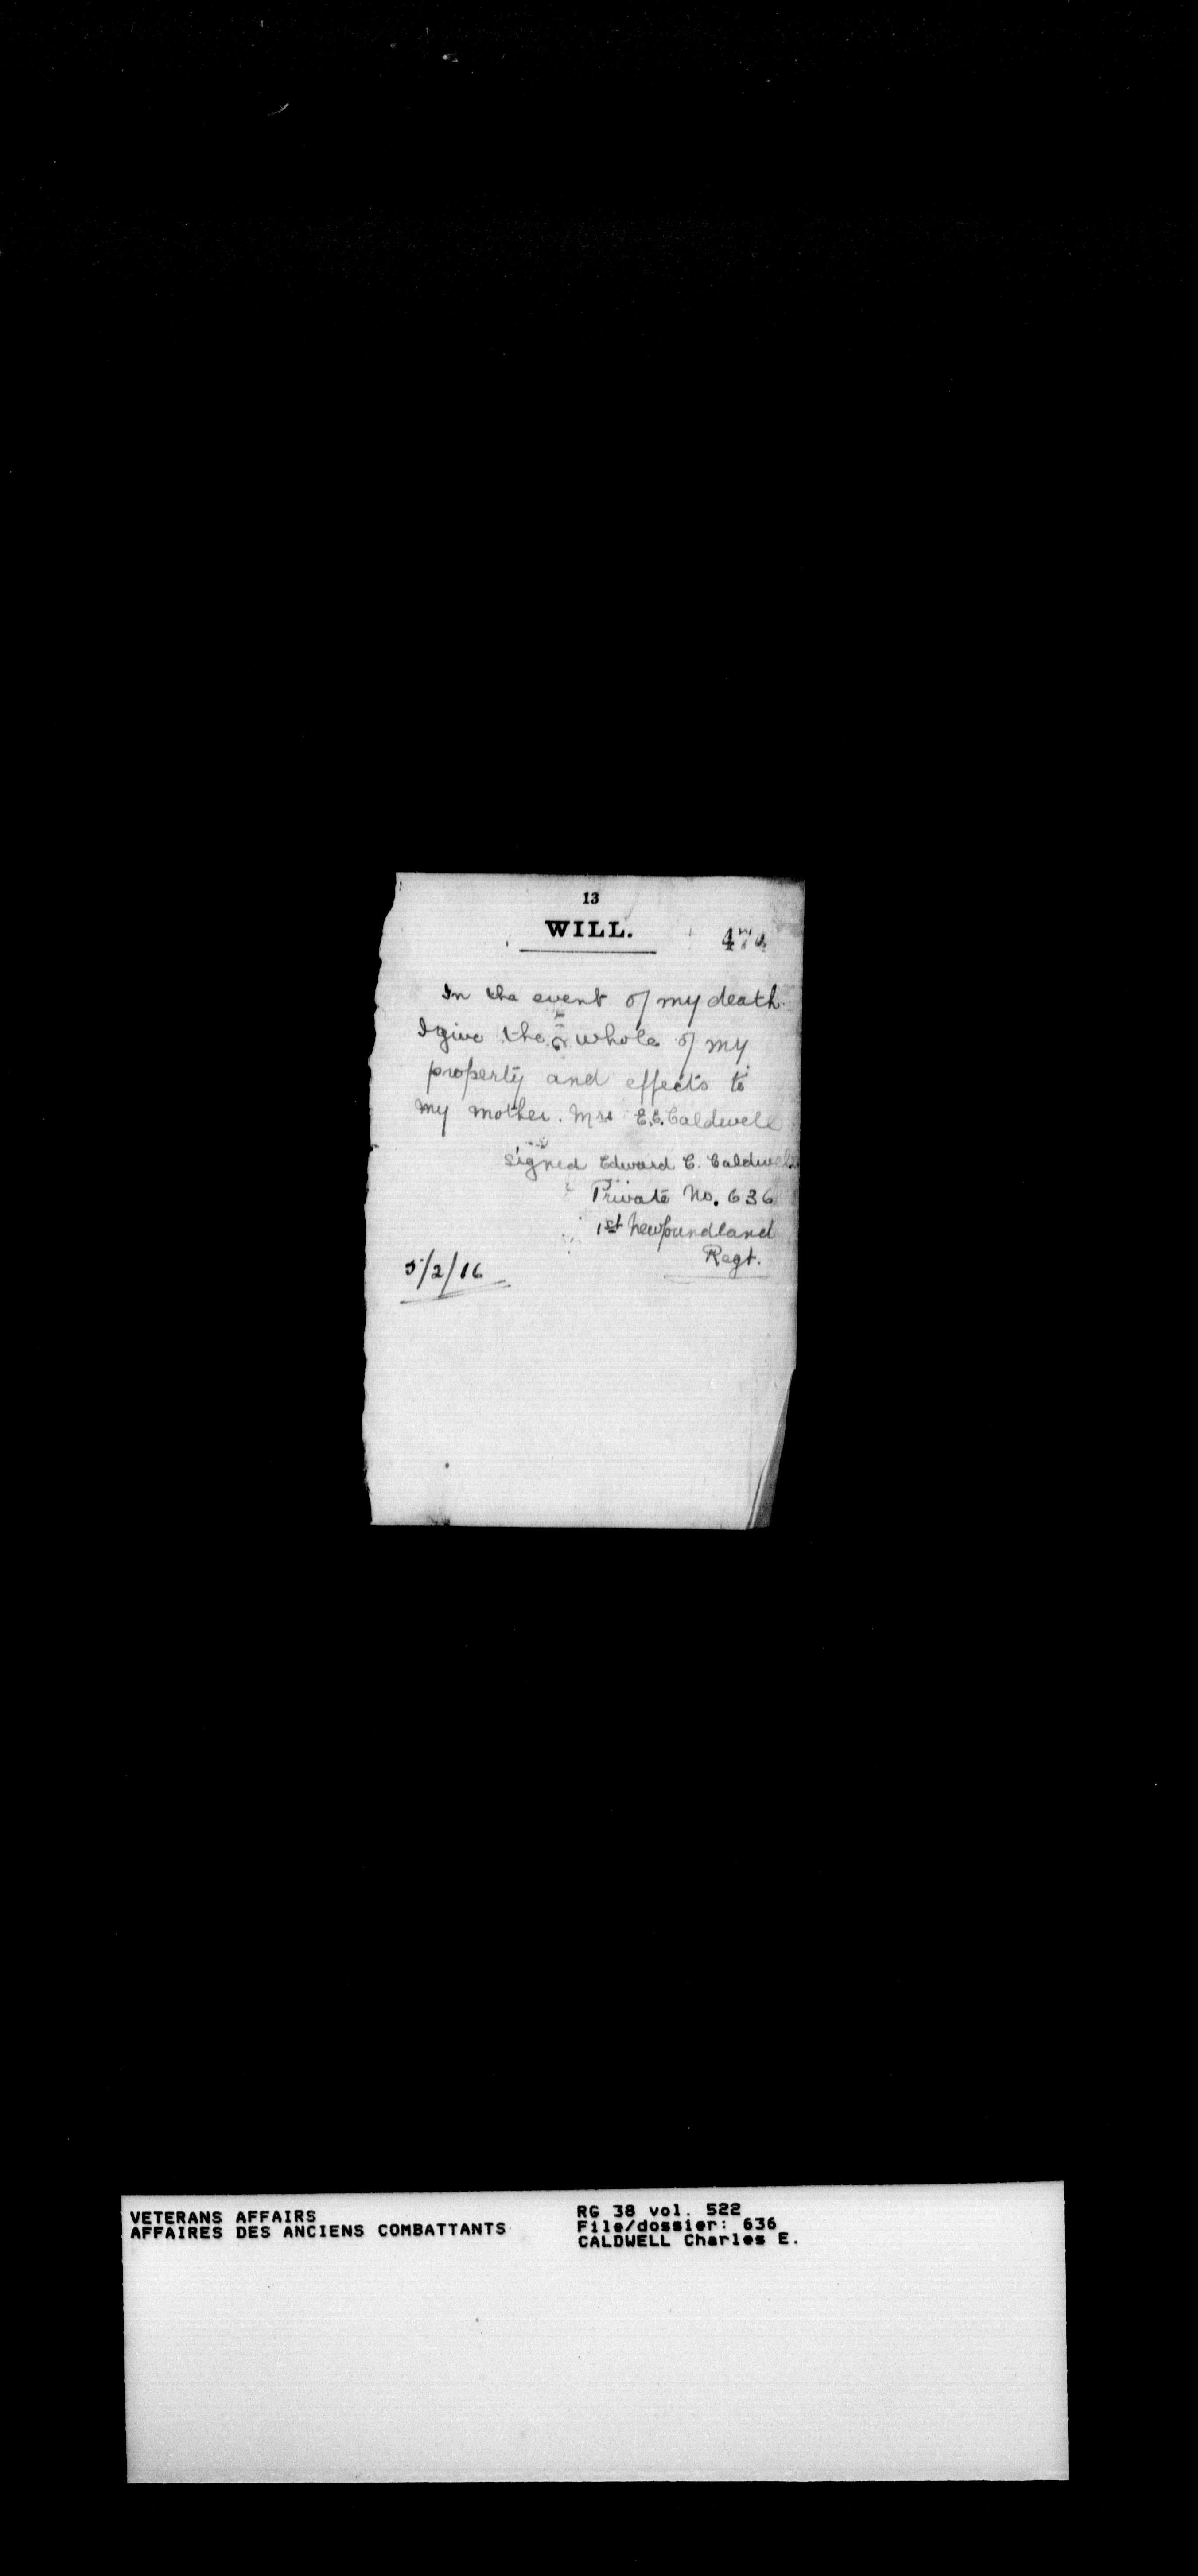 13
WILL.
In the event of my death
I give the whole of my
property and effects to
my mother. Mrs E.C. Caldwell
signed Edward C. Caldwell
Private No. 636
1st Newfoundland
Regt.
5/2/16
VETERANS AFFAIRS
AFFAIRES DES ANCIENS COMBATTANTS
RG 38 vol. 522
File/dossier: 636
CALDWELL Charles E.